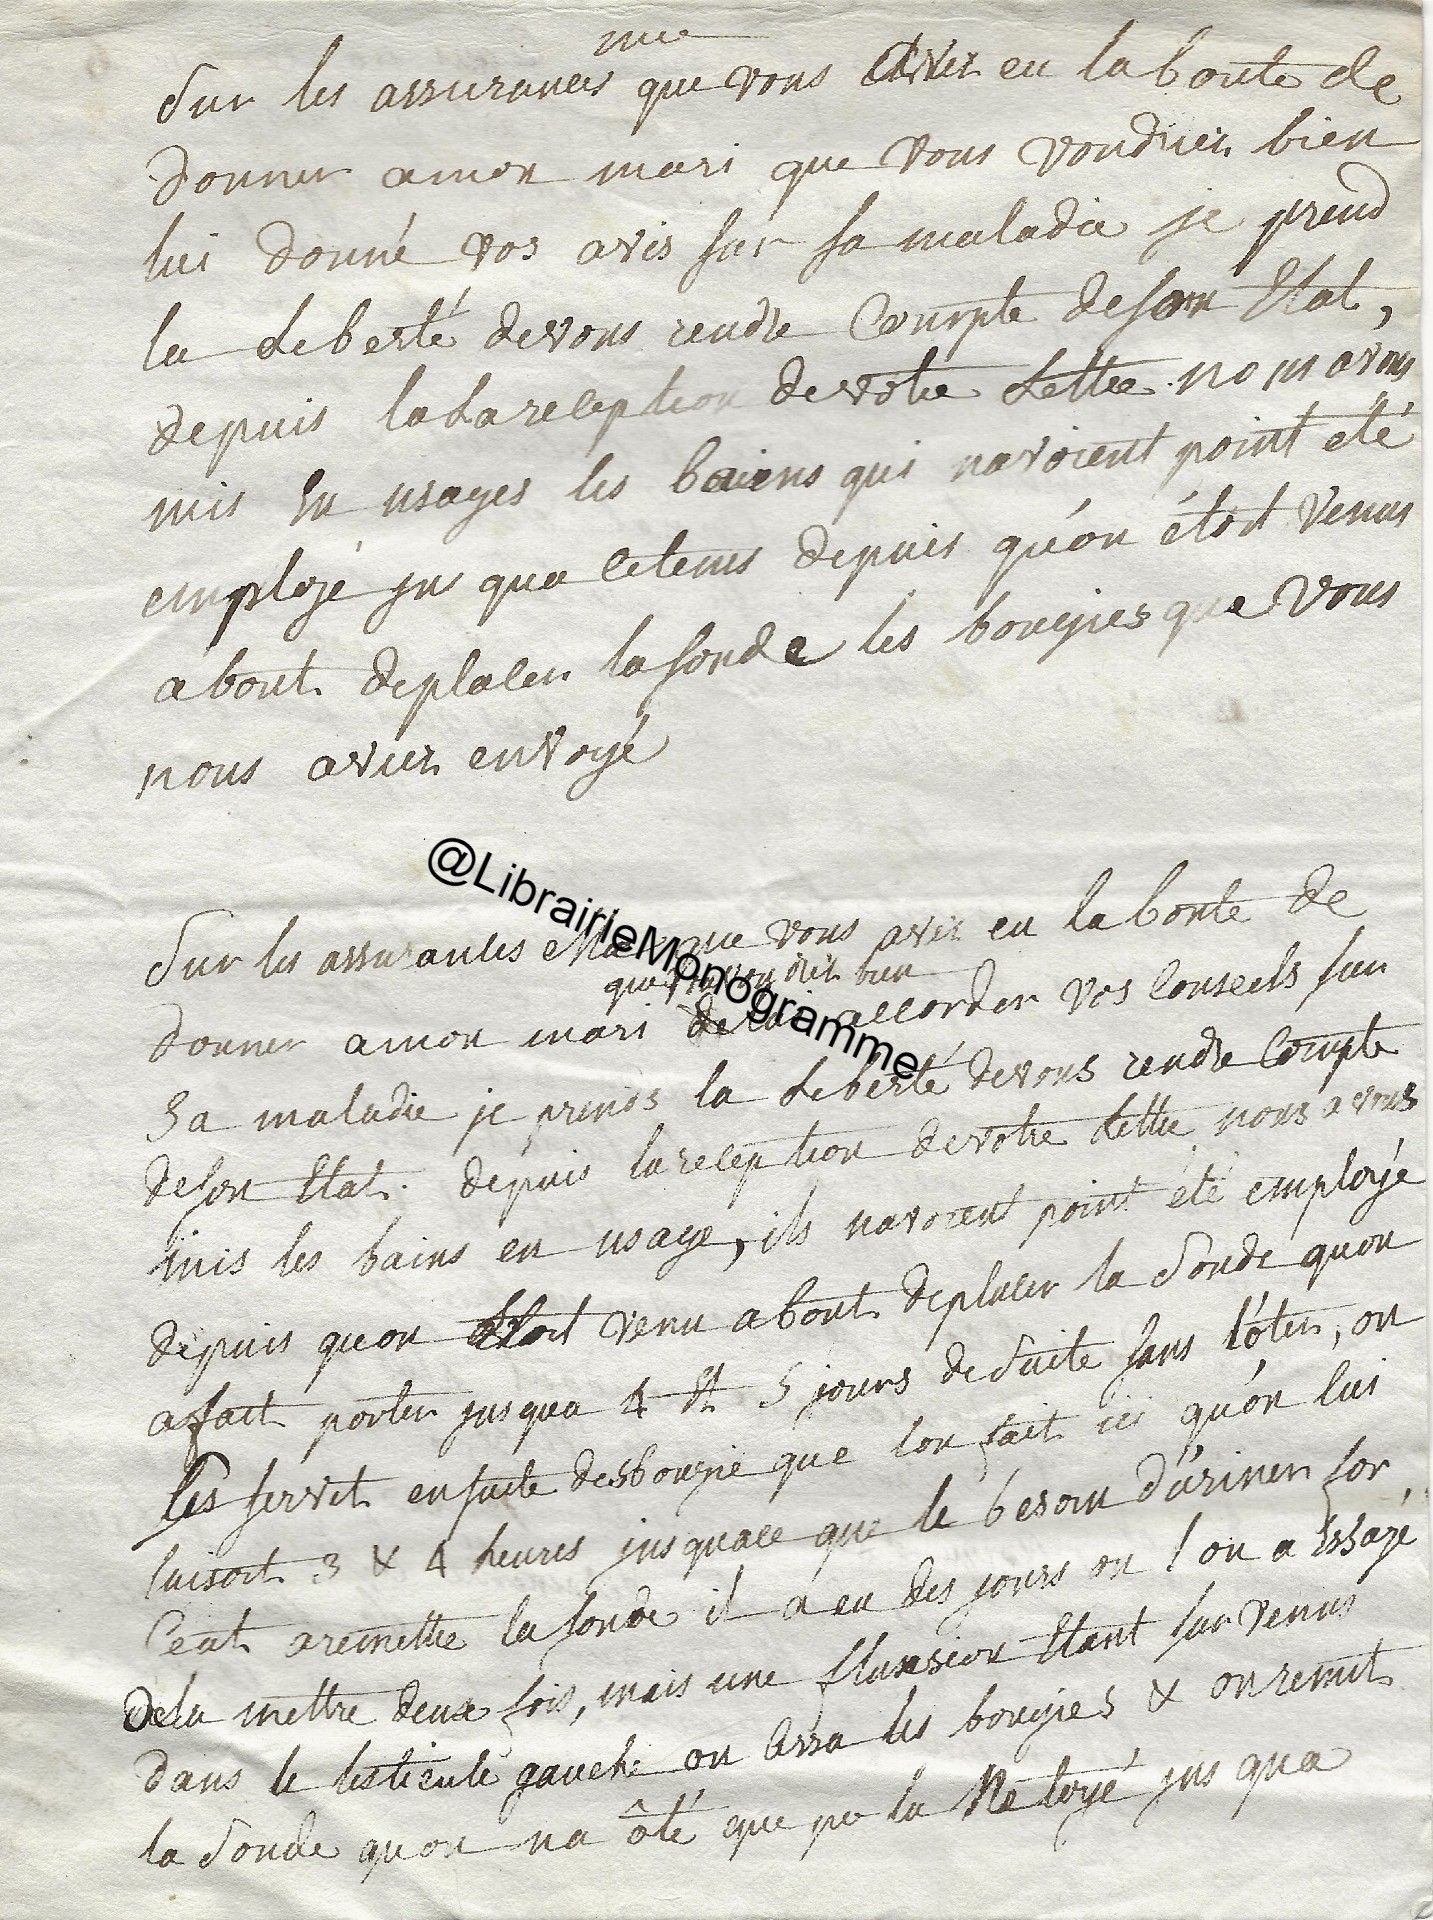 mrr
Sur les assurances que vous aviez eu la bonte de
donner amon mari que vous voudriez bien
lui donné vos avis sur sa maladie je prend
la Liberté devous rendre Compte deson Etat,
depuis la La reception devotre Lettre nous avons
mis En usages les baiens qui navoient point eté
employé jus qua cetems depuis qu'on étoit venus
a bout deplacer la sonde les bougies que vous
nous aviez envoyé
@LibrairieMonogramme
Sur les assurances que vous aviez eu la bonte de
que vous voudriez bien
donner amon mari de lui accorder vos conseils sur
Sa maladie je prends la Liberté devous rendre Compte
deson Etat. depuis la reception devotre Lettre nous avons
mis les bains en usage, ils navoient point été employé
depuis quon Etoit venu a bout deplacer la Sonde quon
a fait porter jusqua 4 et 5 jours de Suite sans l'ôter, on
les servit ensuite des bougie que lon fait ici qu'on lui
laisoit 3 & 4 heures jusquace que le besoin d'uriner for
Ceat a remettre la sonde il a eu des jours ou l'on a Essayé
dela mettre deux fois, mais une fluxsion Etant sur venus
dans le testicule gauche on lessa les bougies & on remit
la Sonde quon na ôté que pr la Netoyé jus qua